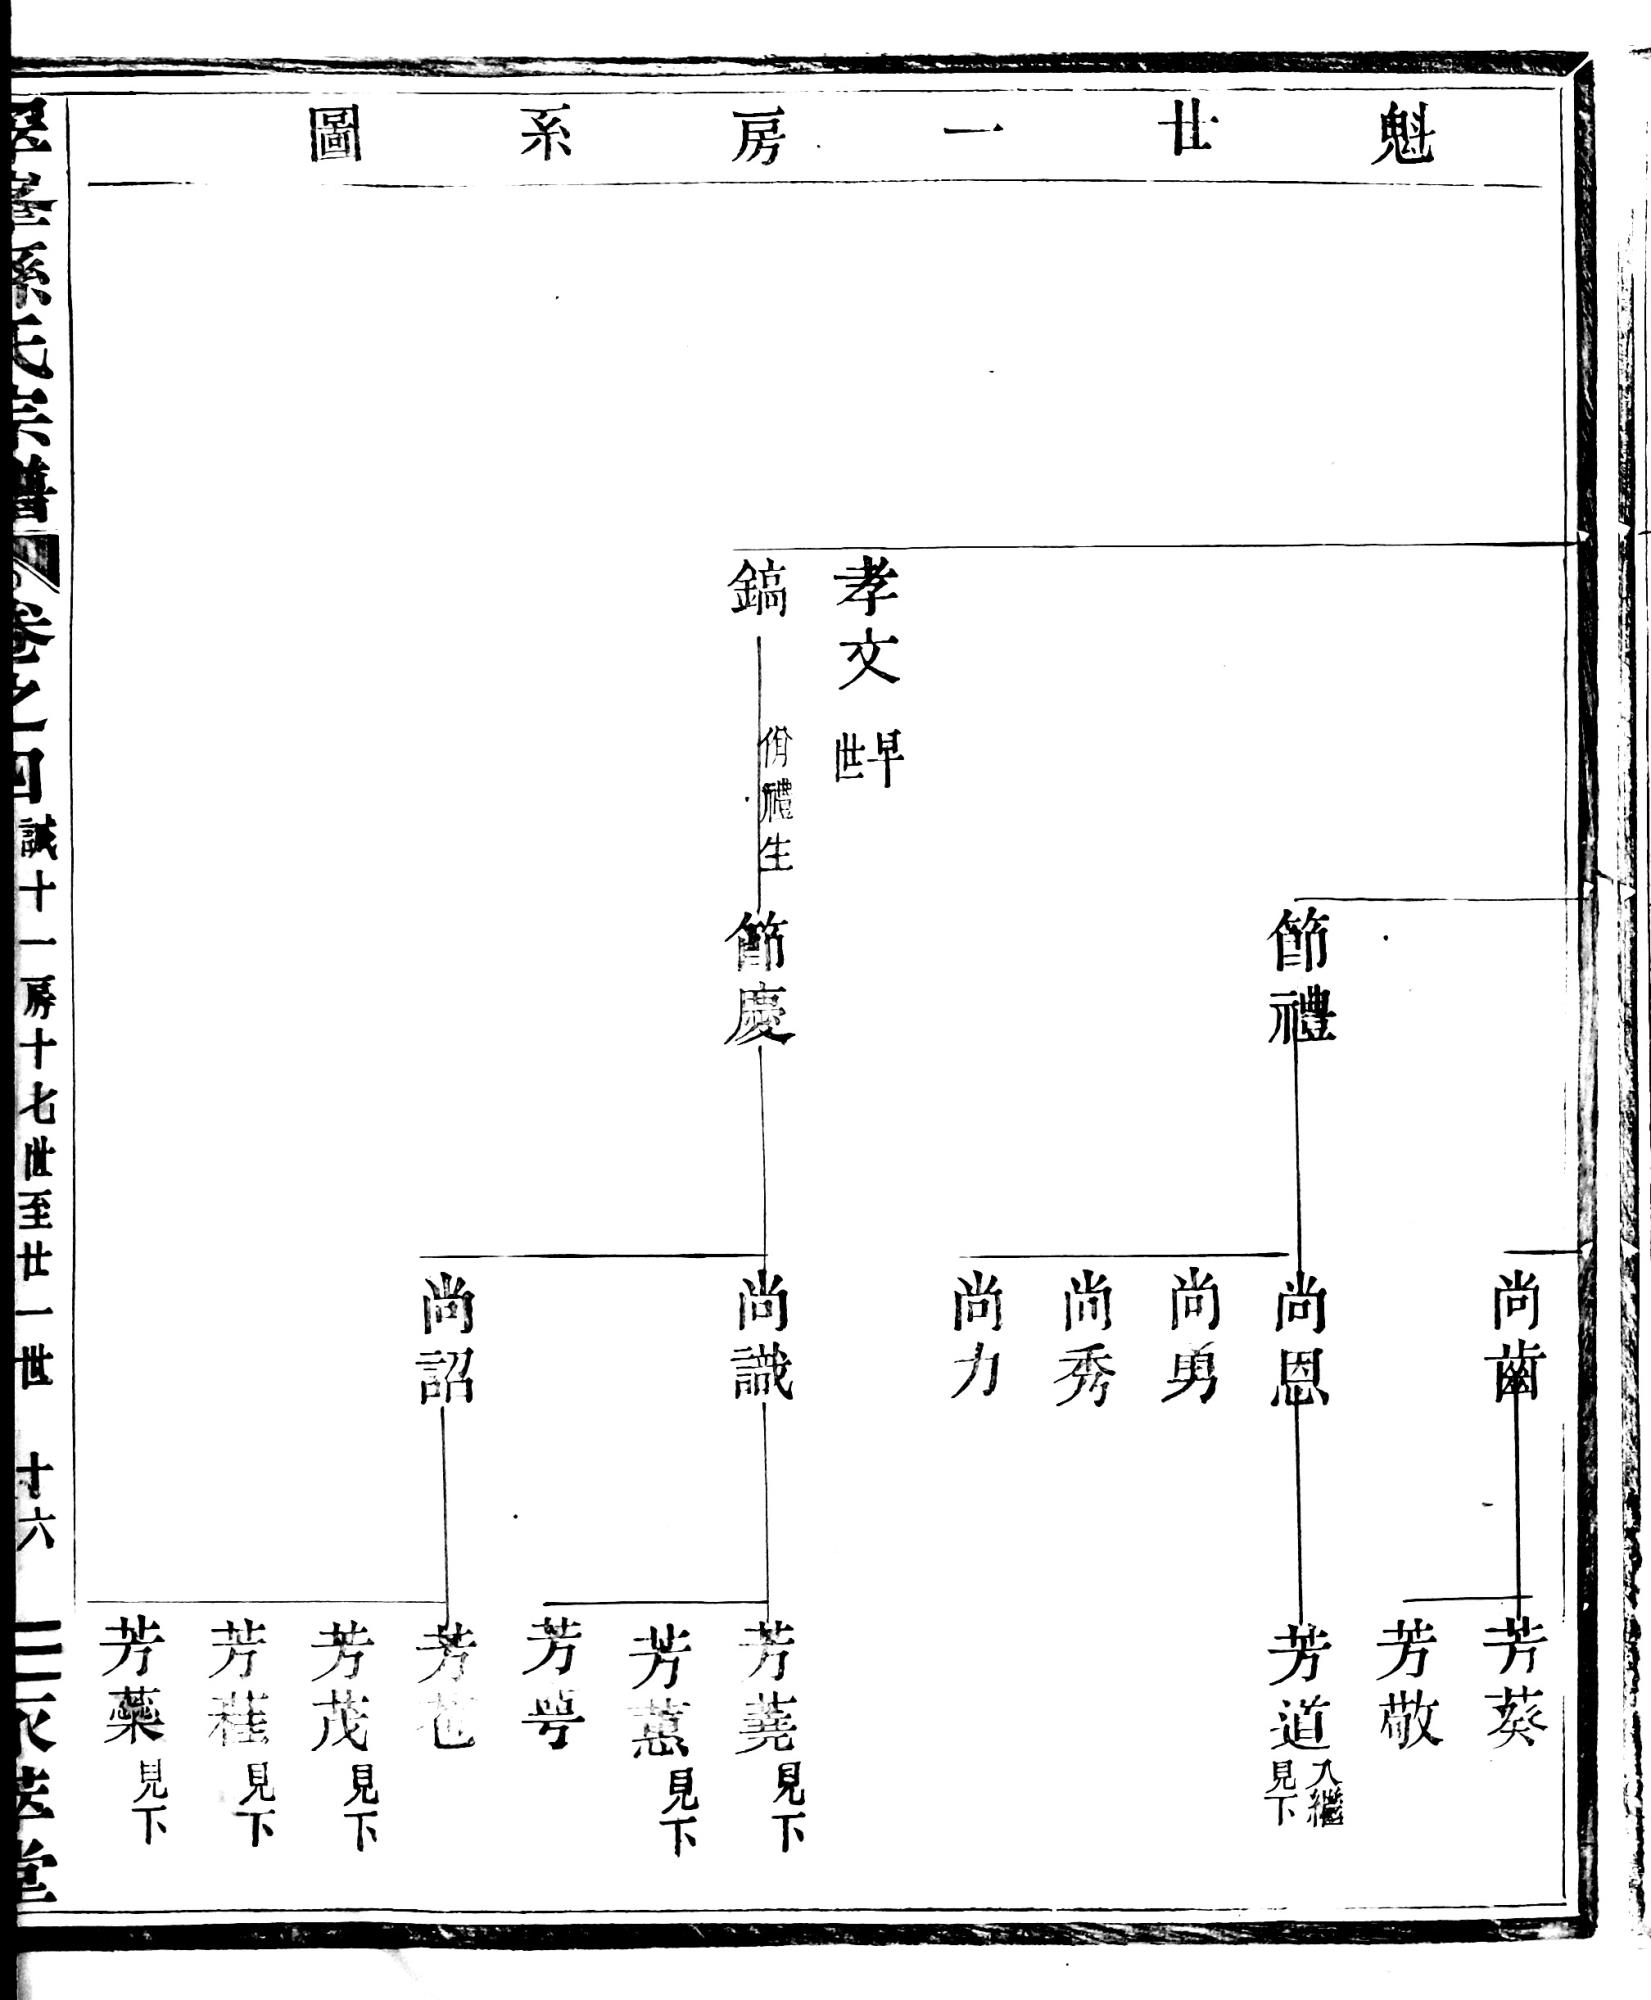 魁廿一房系圖
孝文 早世
鎬 佾禮生
節禮
節慶
尚齒
尚恩
尚勇
尚秀
尚力
尚識
尚詔
芳葵
芳敬
芳道 入繼見下
芳蕘 見下
芳蕙 見下
芳萼
芳苞
芳茂 見下
芳蓕 見下
芳藥 見下
孫氏宗譜 卷之四 誠十一房十七世至廿一世 十六 堂